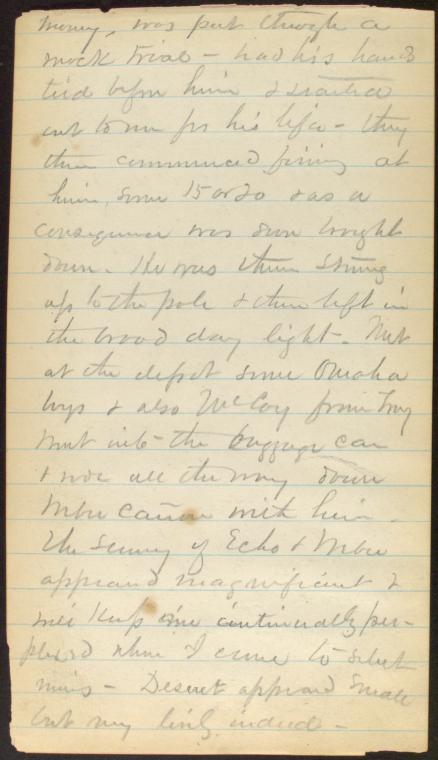 money, was put through a
mock trial - had his hands
tied before him & started
out to run for his life - they
then commenced firing at
him, some 15 or 20 & as a
consequence was soon brought
down. He was then strung
up to the pole & then left in
the broad day light - Met
at the depot some Omaha
boys & also McCoy from
went into the baggage car
& rode all the way down
Weber Cañon with him -
The scenery of Echo & Weber
appeared magnificent &
will keep me continually per-
plexed when I come to select
views - Deseret appeared small
but very lively indeed -